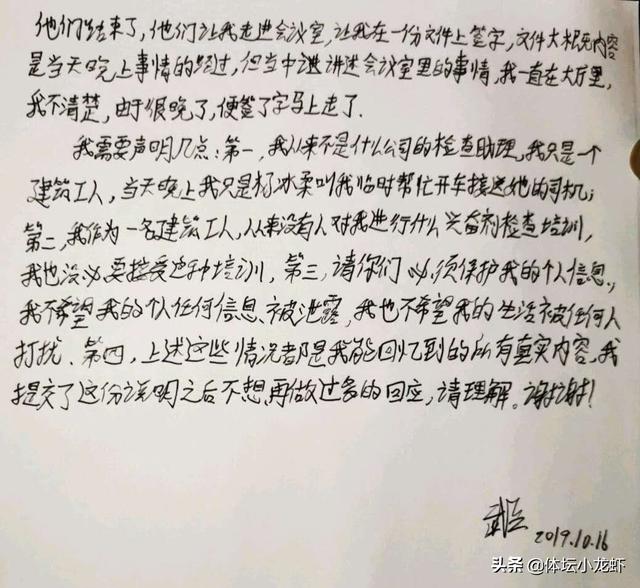 他们结束了，他们让我走进会议室，让我在一份文件上签字，文件大概内容
是当天晚上事情的经过，但当中讲述会议室里的事情，我一直在大厅里，
我不清楚，由于很晚了，便签了字马上走了.
我需要声明几点：第一，我从来不是什么公司的检查助理，我只是一个
建筑工人，当天晚上我只是杨冰柔叫我临时帮忙开车接送她的司机；
第二，我作为一名建筑工人，从来没有人对我进行什么兴奋剂检查培训，
我也没必要接受这种培训，第三，请你们必须保护我的个人信息，
我不希望我的个人任何信息被泄露，我也不希望我的生活被任何人
打扰、第四，上述这些情况都是我能回忆到的所有真实内容，我
提交了这份说明之后不想再做过多的回应，请理解。谢谢！
2019.10.16
头条@体坛小龙虾